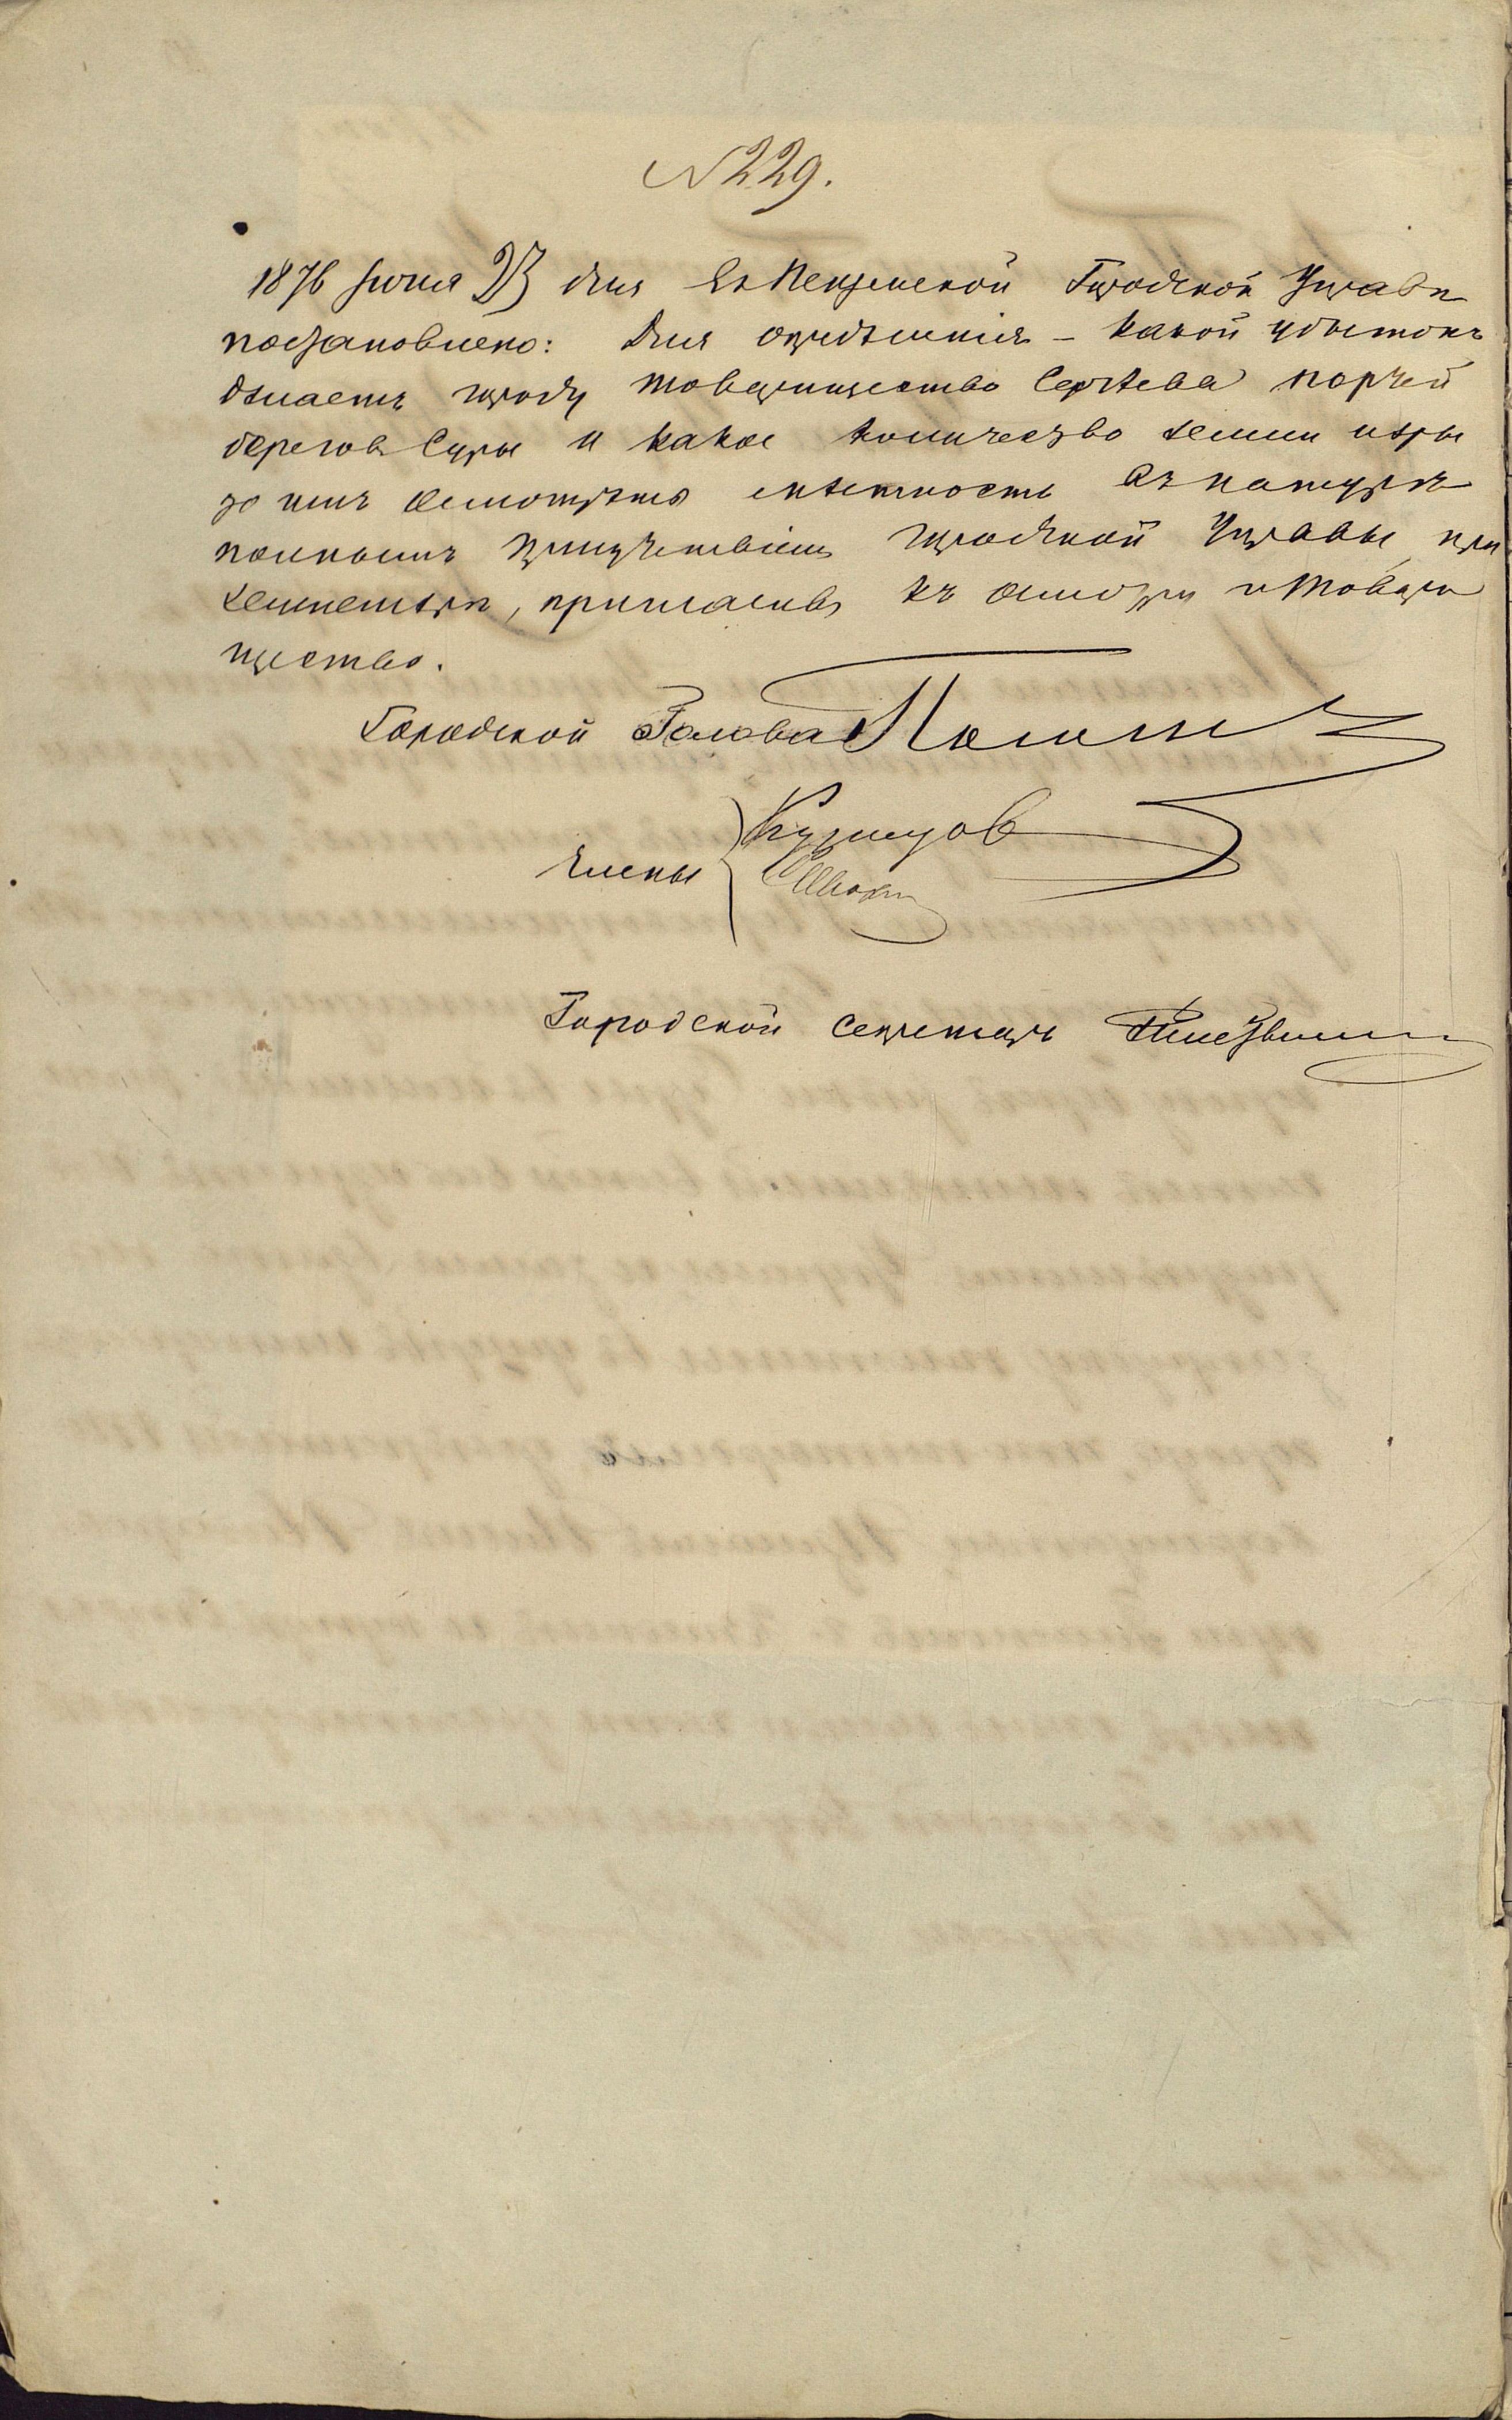 № 229.
1876 Іюня 23 дня Въ Пензенской Городской Управѣ
постановлено: Для опредѣленія – какой убытокъ
дѣлаетъ городу товарищество Сергѣева порчей
береговъ Суры и какое количество земли изры
то имъ осмотрѣть мѣстность въ натурѣ
полнымъ присутствіемъ Городской Управы, при
землемѣрѣ, пригласивъ къ осмотру и Товари
щество.
Городской Голова
Члены Кузнецов
Городской Секретарь